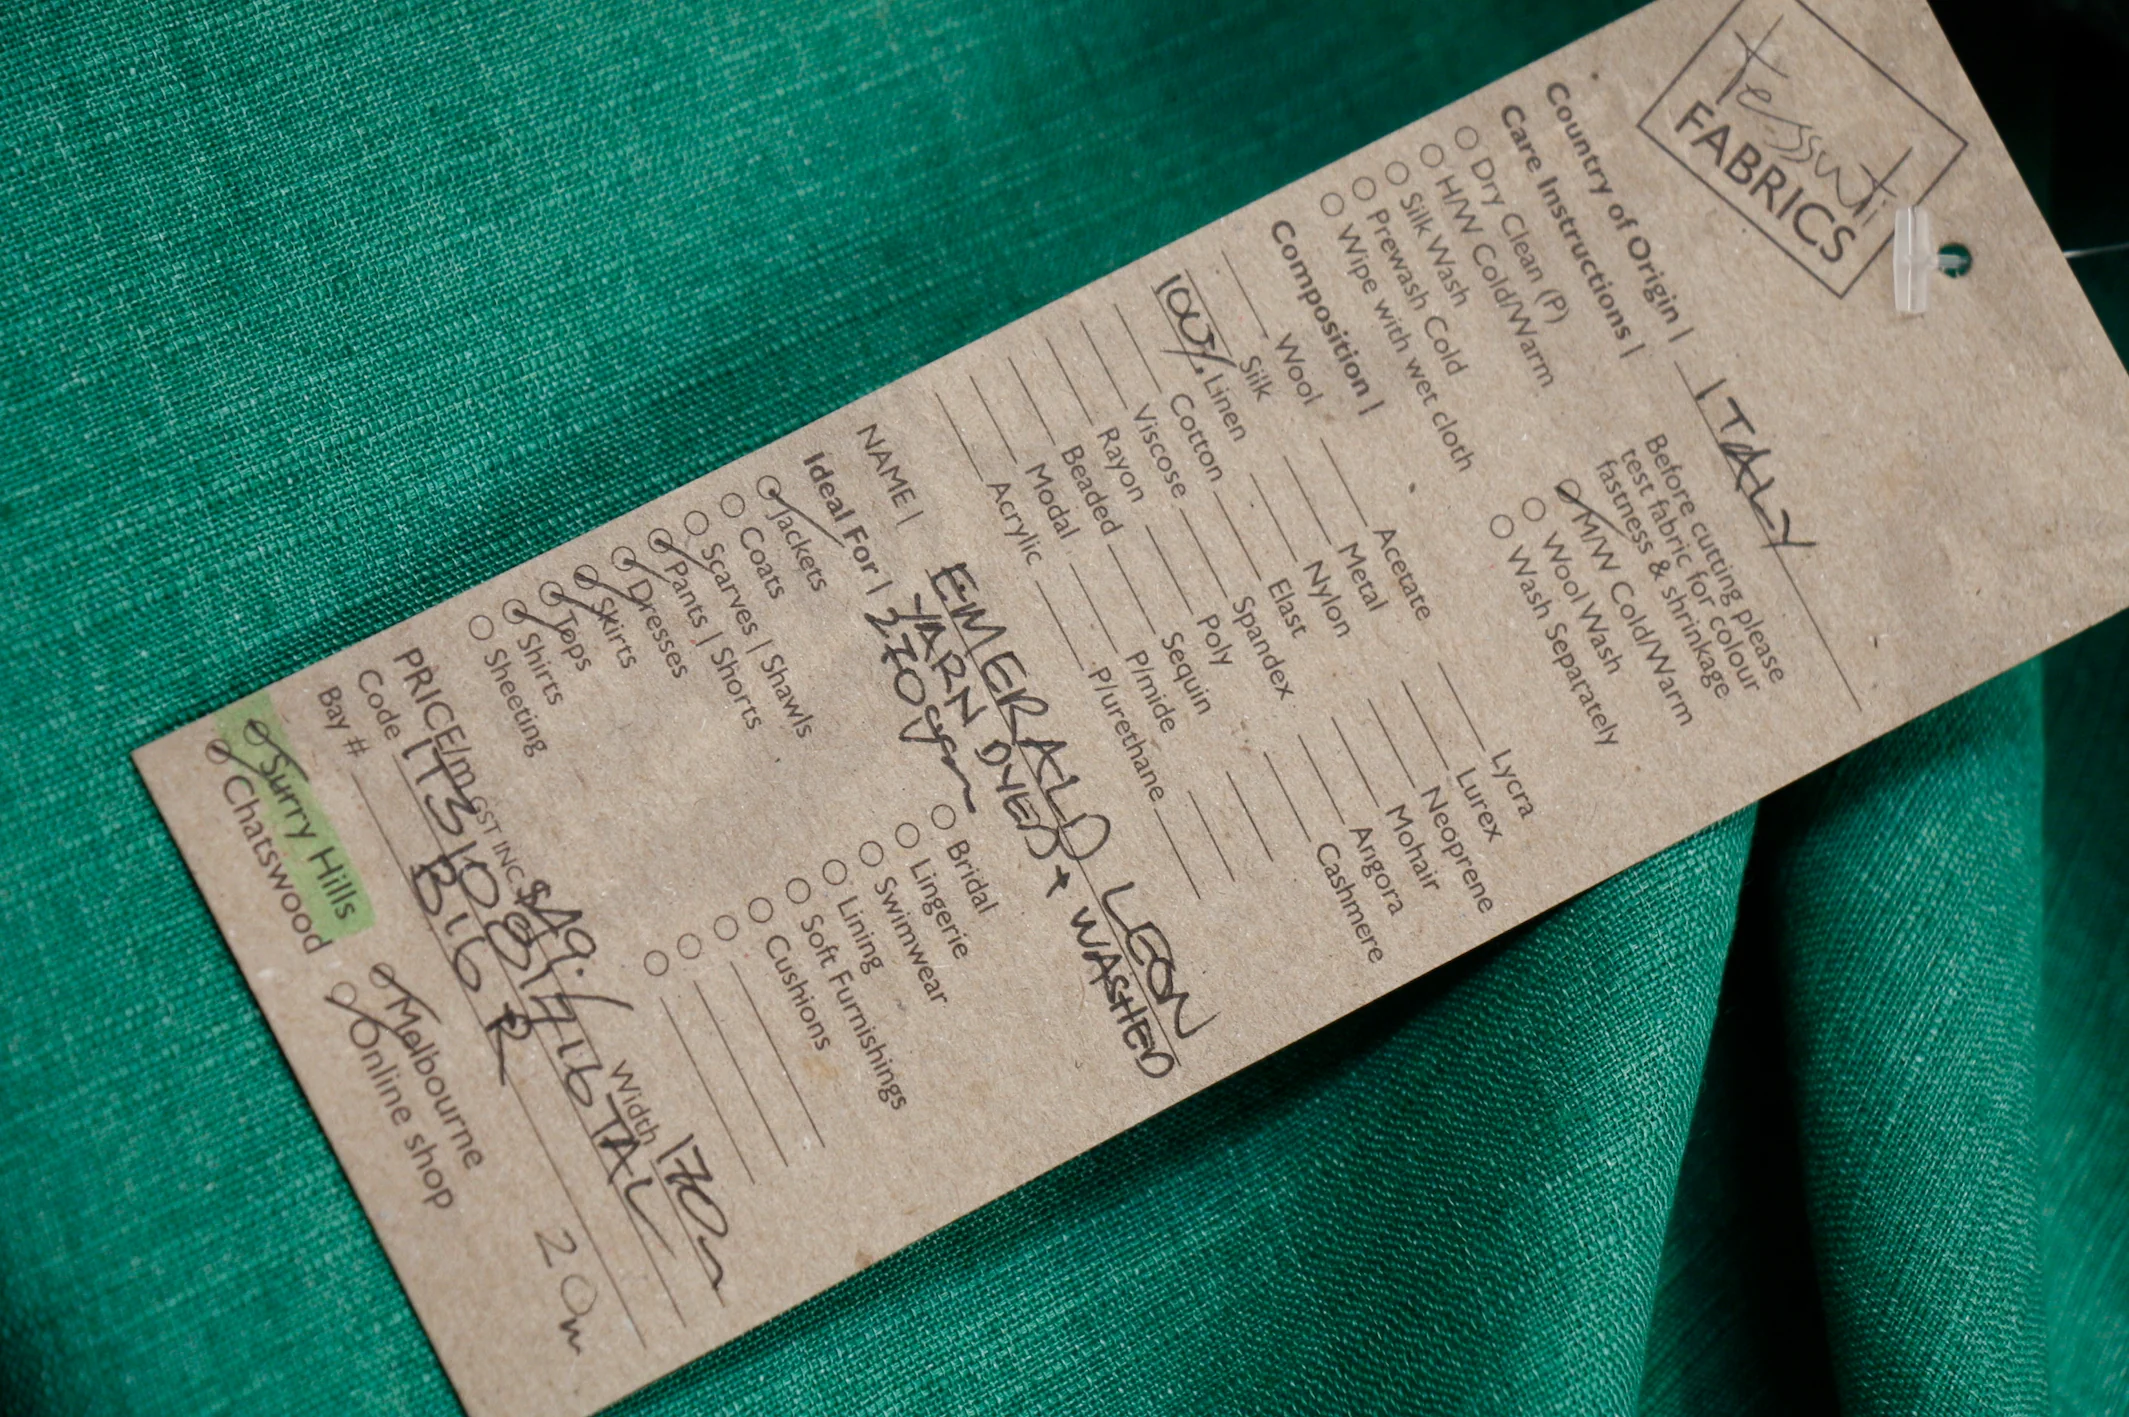 tessuti
FABRICS
Country of Origin | ITALY
Care Instructions |
Before cutting please
test fabric for colour
fastness & shrinkage
Dry Clean (P)
H/W Cold/Warm
Silk Wash
Prewash Cold
Wipe with wet cloth
M/W Cold/Warm
Wool Wash
Wash Separately
Composition |
Wool
Silk
100% Linen
Cotton
Viscose
Rayon
Beaded
Modal
Acrylic
Acetate
Metal
Nylon
Elast
Spandex
Poly
Sequin
P/mide
P/urethane
Lycra
Lurex
Neoprene
Mohair
Angora
Cashmere
NAME | EMERALD LEON
YARN DYED + WASHED
270gsm
Ideal For |
Jackets
Coats
Scarves | Shawls
Pants | Shorts
Dresses
Skirts
Tops
Shirts
Sheeting
Bridal
Lingerie
Swimwear
Lining
Soft Furnishings
Cushions
PRICE/m GST INC. $49.
Width 170
Code
Bay #
20m
Surry Hills
Chatswood
Melbourne
Online shop